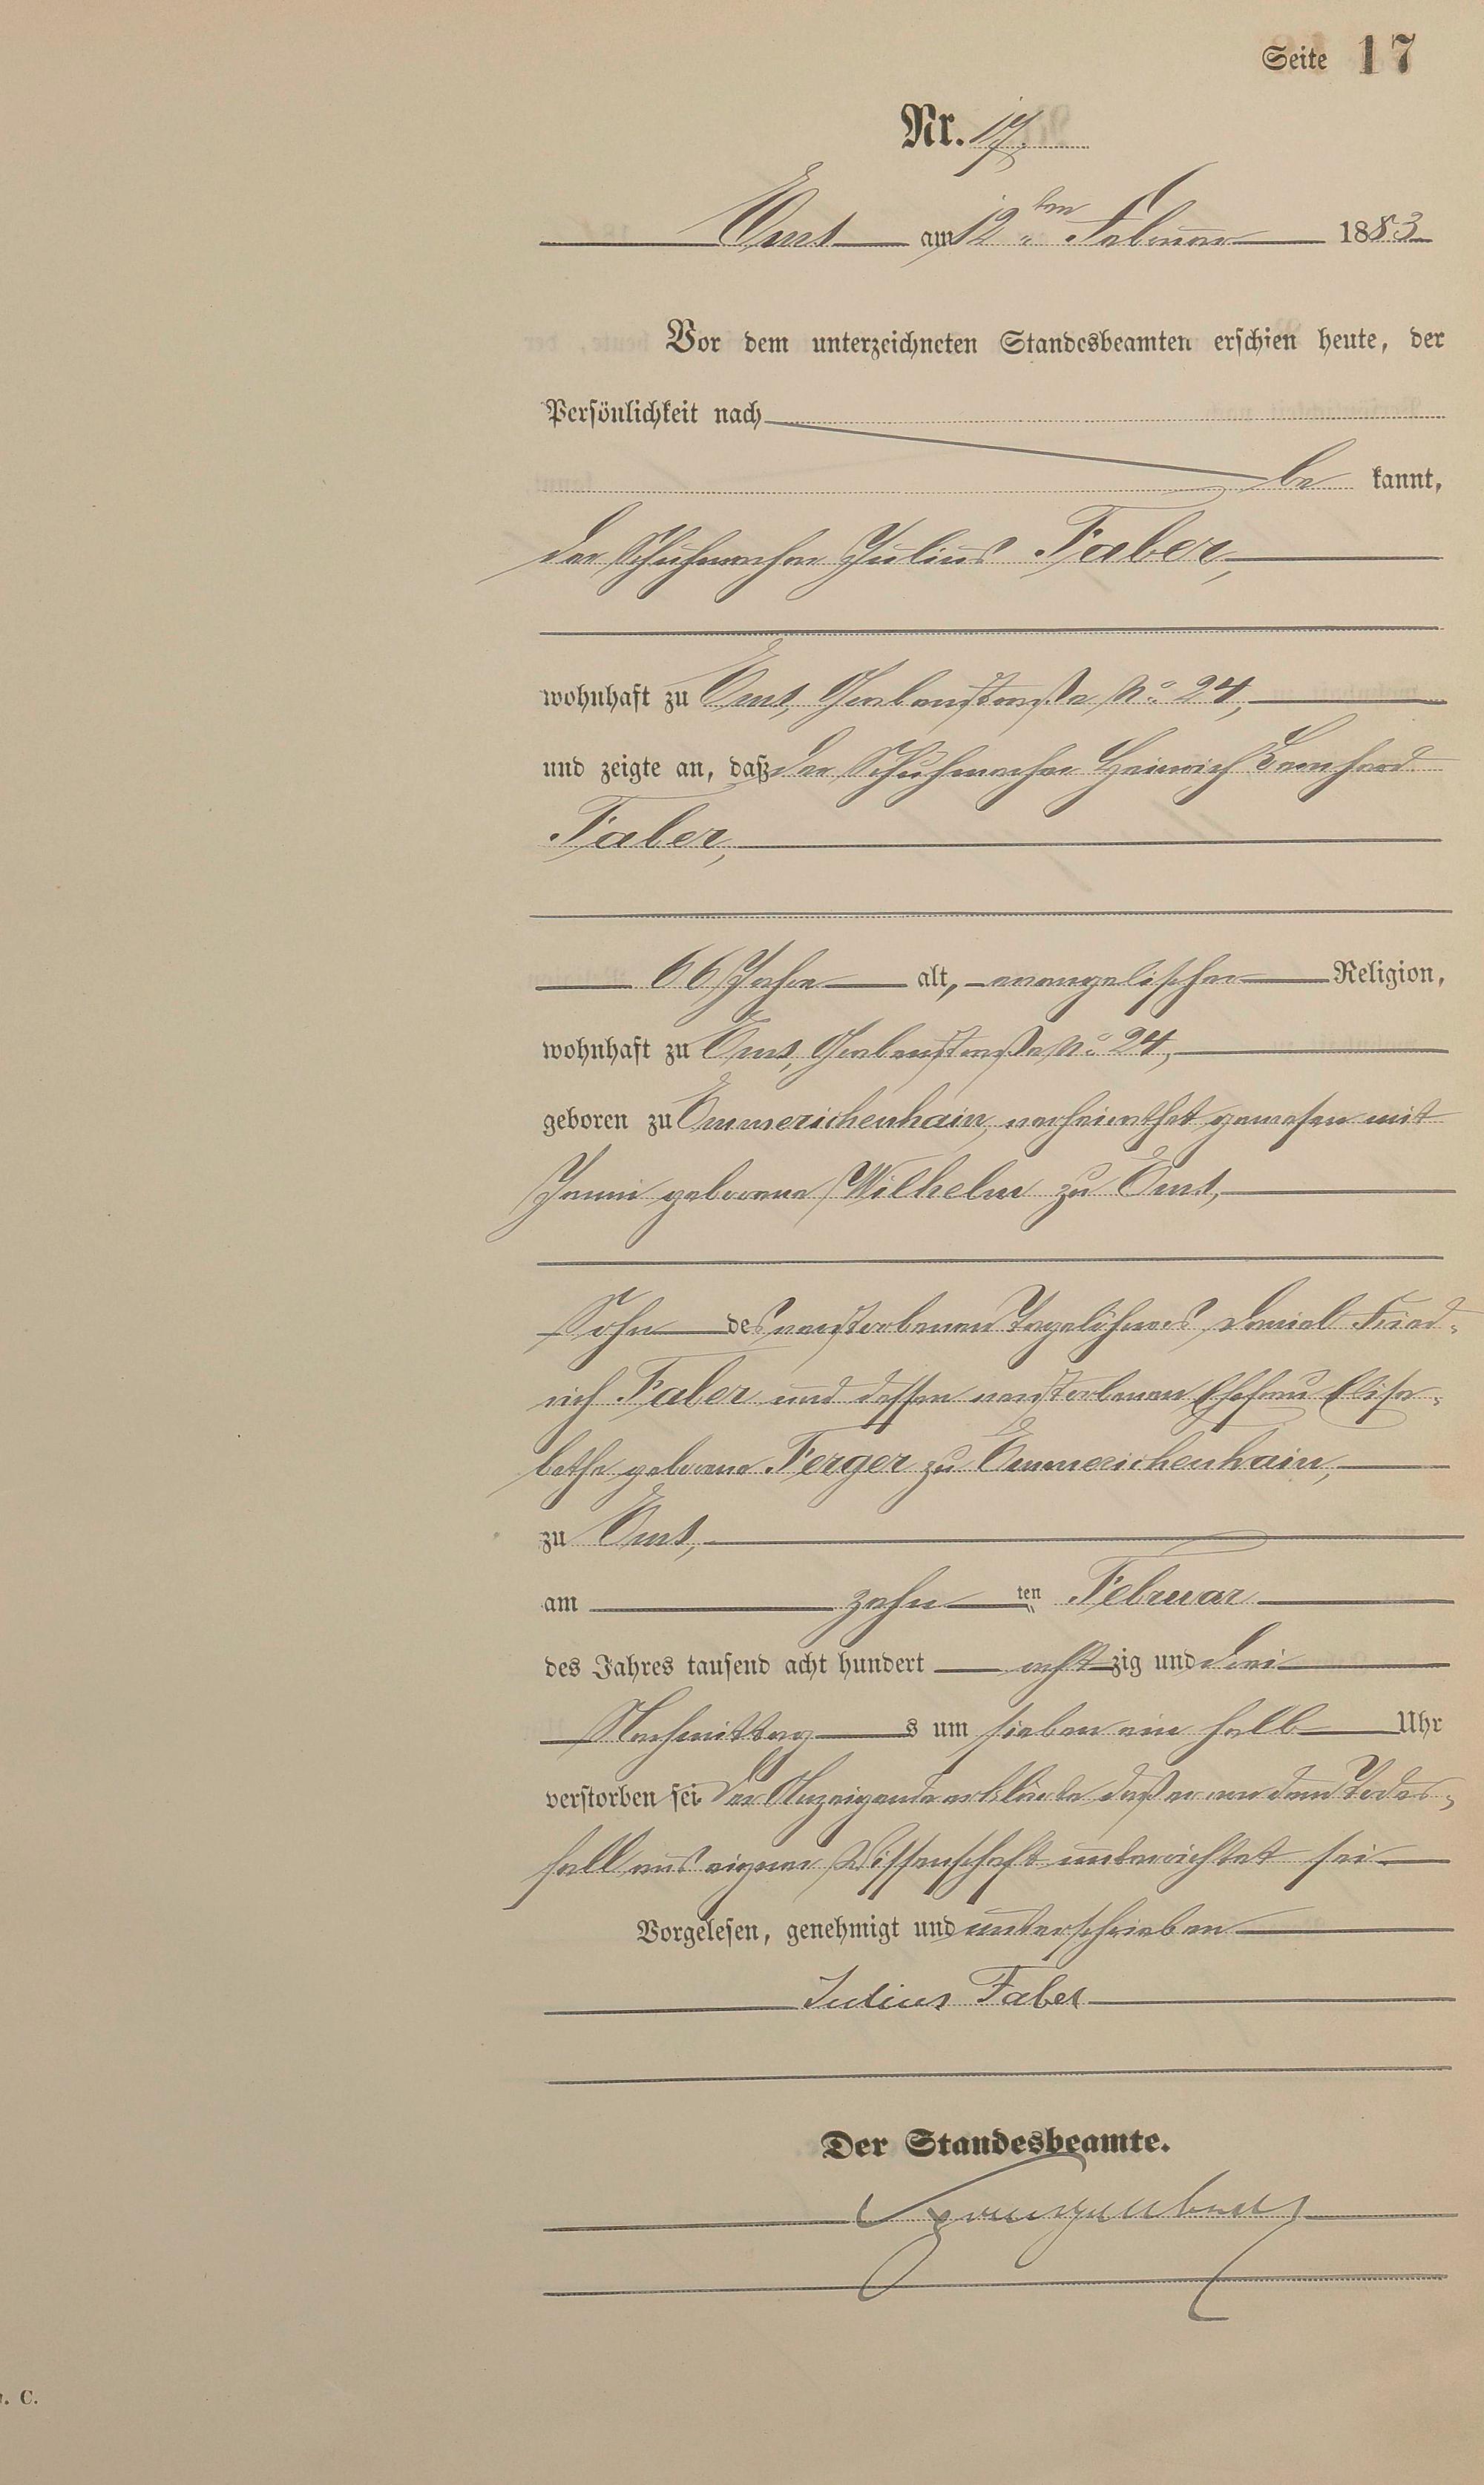 Seite 17
Nr. 17.
Ems am 12ten Februar 1883
Vor dem unterzeichneten Standesbeamten erschien heute, der
Persönlichkeit nach
be kannt,
der Schuhmacher Julius Faber,
wohnhaft zu Ems, Grabenstraße No. 24,
und zeigte an, daß der Schuhmacher Heinrich Bernhard
Faber,
66 Jahre alt, evangelischer Religion,
wohnhaft zu Ems, Grabenstraße No. 24,
geboren zu Emmerichenhain, verheirathet gewesen mit
geborene Wilhelm zu Ems,
Sohn des verstorbenen Tagelöhners Daniel Fried-
rich Faber und dessen verstorbenen Ehefrau Elisa-
betha geborene Ferger zu Emmerichenhain,
zu Ems,
am zehn ten Februar
des Jahres tausend acht hundert acht zig und drei
Nachmittag s um sieben ein halb Uhr
verstorben sei. Der Anzeigende erklärte daß er von dem Todes-
fall aus eigener Wissenschaft unterrichtet sei.
Vorgelesen, genehmigt und unterschrieben
Julius Faber
Der Standesbeamte.
. C.